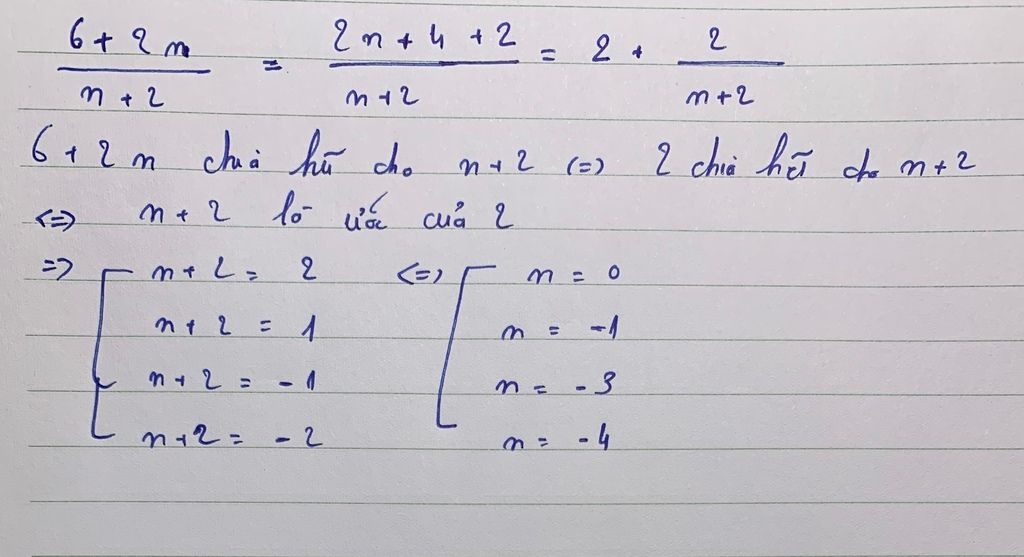 (6 + 2n)/(n + 2) = (2n + 4 + 2)/(n + 2) = 2 + 2/(n + 2)
6 + 2n chia hết cho n + 2 (=) 2 chia hết cho n + 2
<=> n + 2 là ước của 2
=> [ n + 2 = 2 <=> [ n = 0
n + 2 = 1 n = -1
n + 2 = -1 n = -3
n + 2 = -2 n = -4